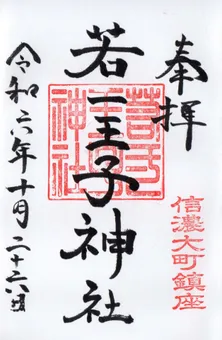 奉拝
信濃大町鎮座
若一王子神社
令和六年十月二十六日